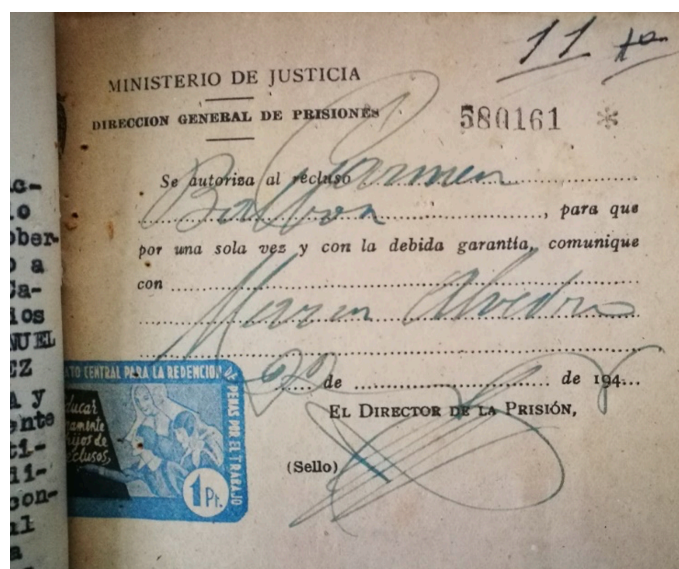 11 ta
MINISTERIO DE JUSTICIA
DIRECCION GENERAL DE PRISIONES
580161 *
Se autoriza al recluso Carmen
Balboa, para que
por una sola vez y con la debida garantía, comunique
con
Alvedro
de de 194
EL DIRECTOR DE LA PRISIÓN,
(Sello)
ATO CENTRAL PARA LA REDENCION DE PENAS POR EL TRABAJO
ducar
amente
hijos de
clusos,
1 Pt.
c-
o
ober-
o a
Ca-
ios
NUEL
EZ
y
ente
ti-
li-
con-
al
a